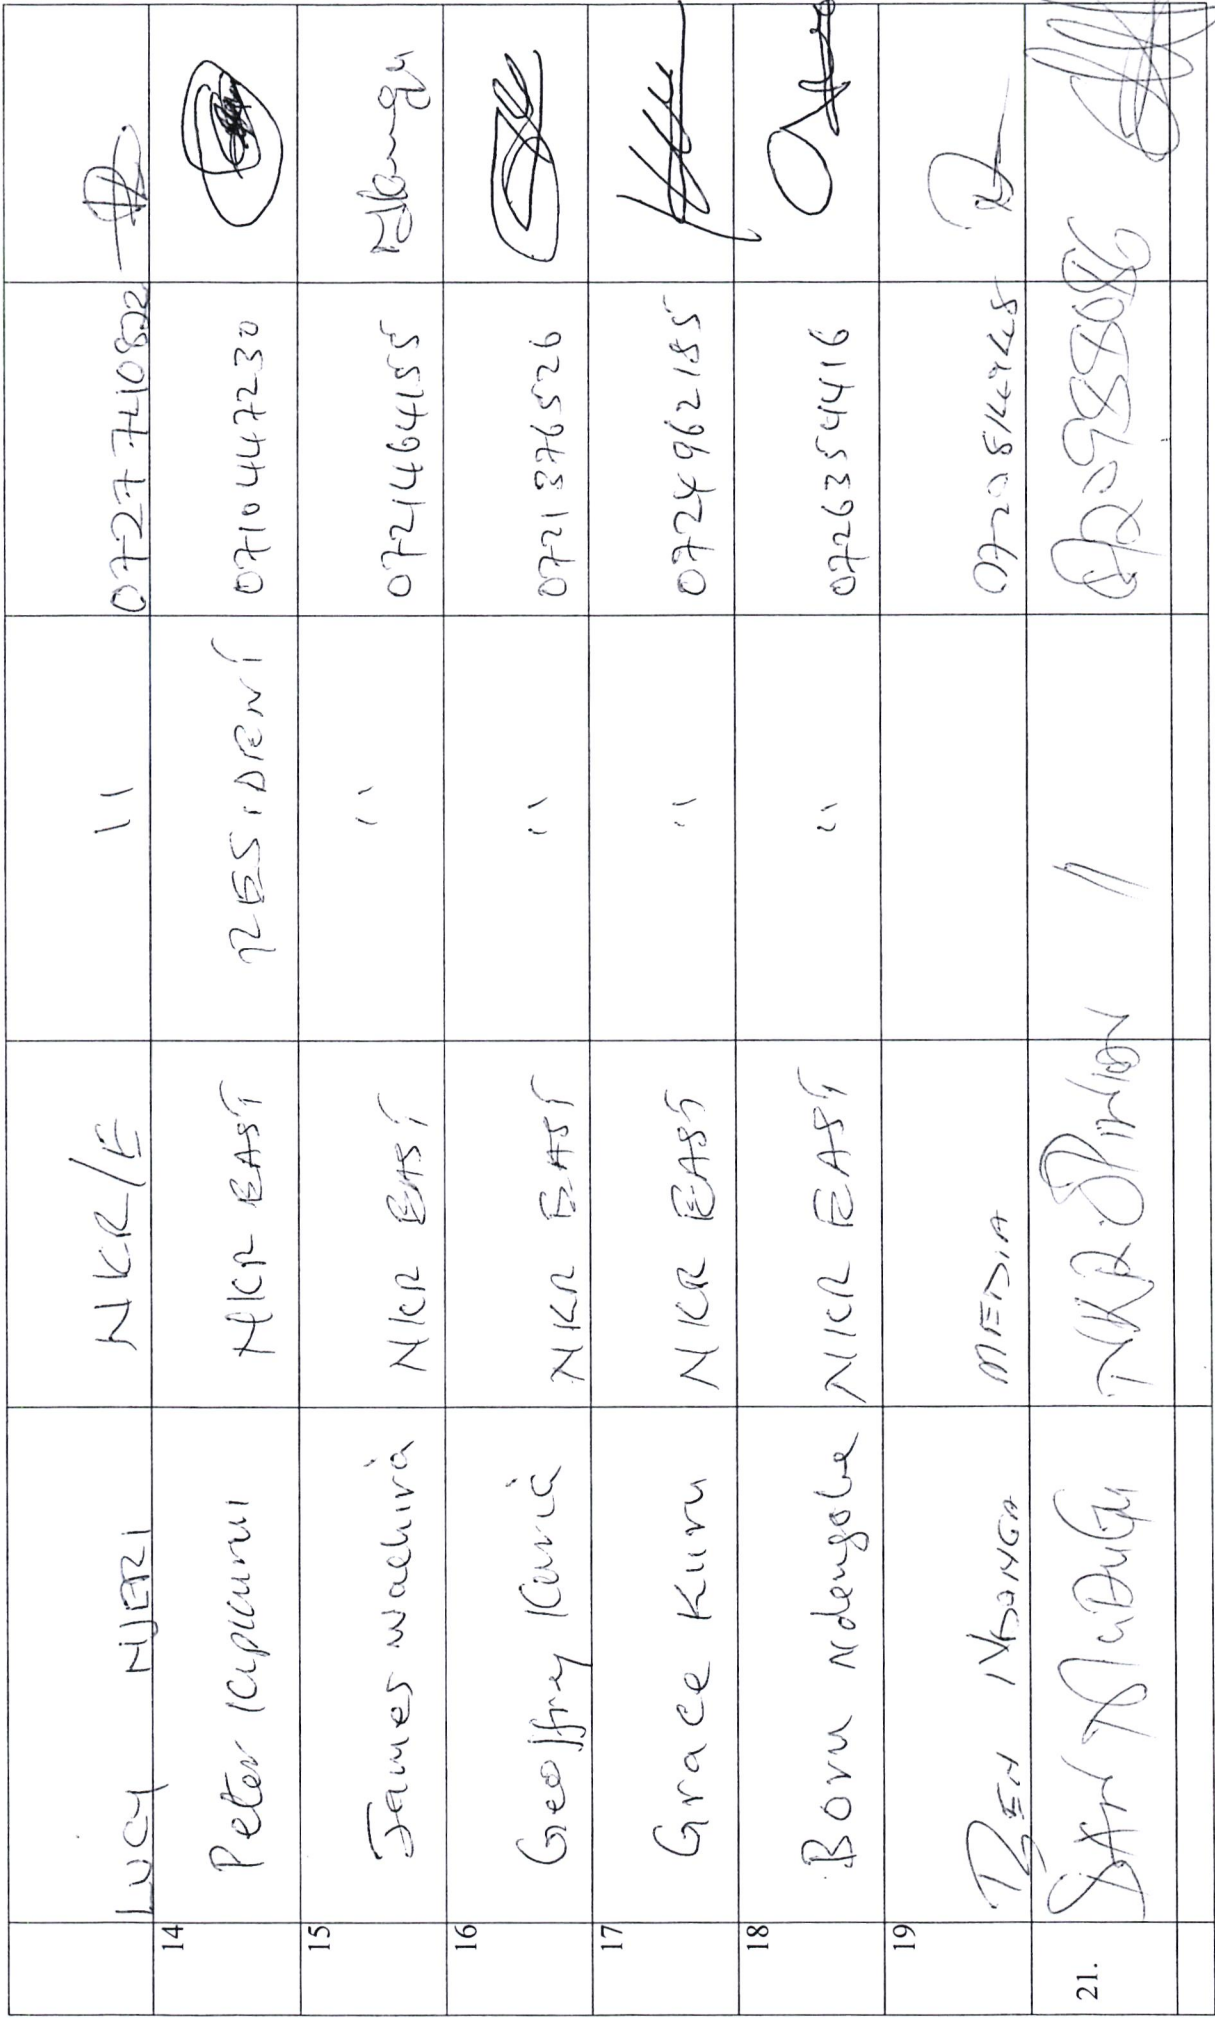 LUCY NJERI NKR/E 11 0727740822
14 Peter NKR EAST RESIDENT 0710447230
15 James Wachira NKR EAST " 0721464155
16 Geoffrey Kuria NKR EAST " 0721376526
17 Grace Kuru NKR EAST " 0724962185
18 Boru Ndengobe NKR EAST " 0726354416
19 BEN NDONGA MEDIA
21. SAN NDUGU NKR OPINION 11 0720988086